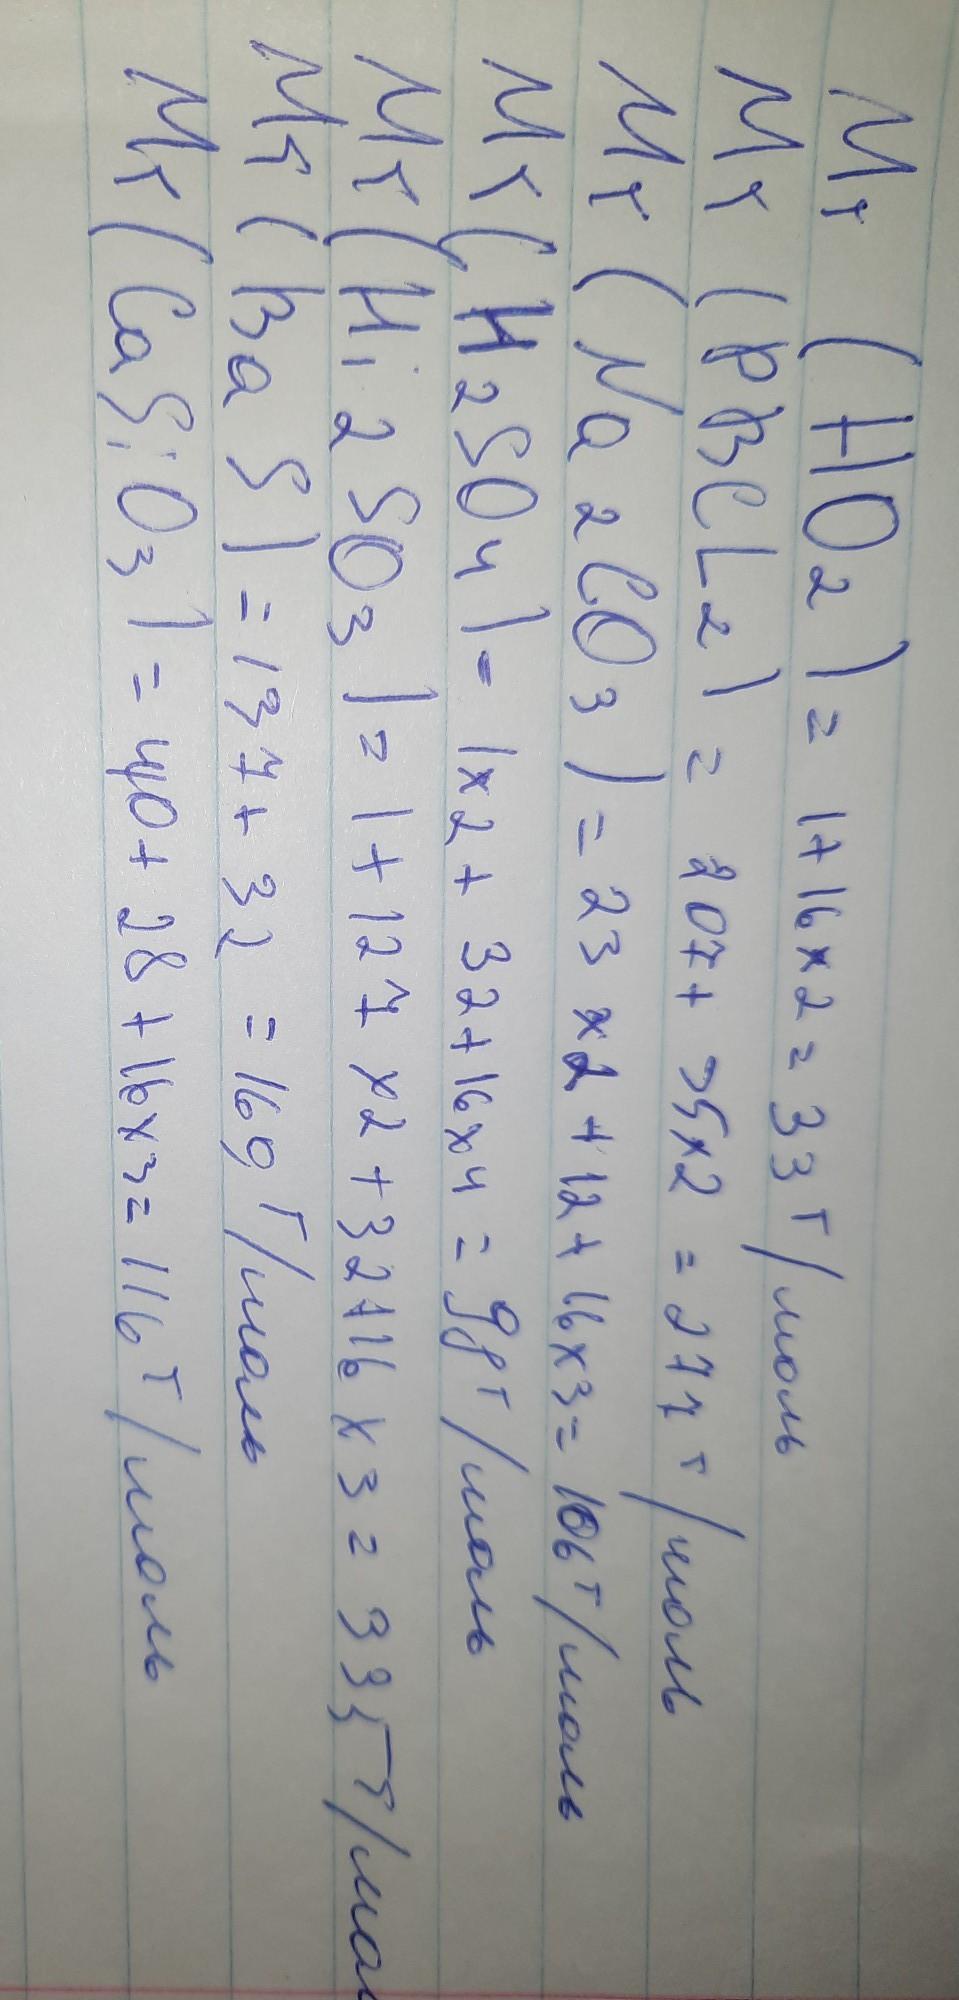 Mr (HO2) = 1+16x2 = 33 г/моль
Mr (PBCL2) = 207+35x2 = 277 г/моль
Mr (Na2CO3) = 23x2+12+16x3= 106 г/моль
Mr (H2SO4) - 1x2+32+16x4 = 98 г/моль
Mr (Hi2SO3) = 1+127x2+32+16x3 = 335 г/мол
Mr (BaS) = 137+32 = 169 г/моль
Mr (CaSiO3) = 40+28+16x3= 116 г/моль